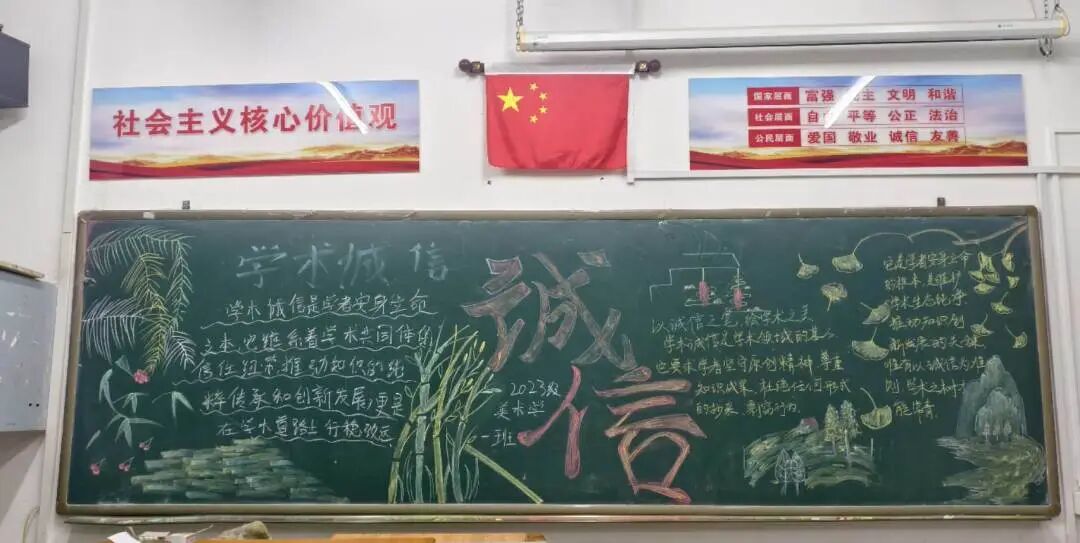 社会主义核心价值观
国家层面 富强 民主 文明 和谐
社会层面 自由 平等 公正 法治
公民层面 爱国 敬业 诚信 友善
学术诚信
学术诚信是学者安身立命
之本 更维系着学术共同体的
信任纽带推动知识的纯
粹传承和创新发展更是
在学术道路上行稳致远
诚信
2023级
美术学
一班
以诚信之笔,绘学术之美
学术诚信是学术领域的基石
也要求学者坚守原创精神 尊重
知识成果,杜绝任何形式
的抄袭、剽窃行为.
它是学者安身立命
的根本,是维护
学术生态纯净、
推动知识创
新探索的关键
唯有以诚信为准
则 学术之树才
能常青.